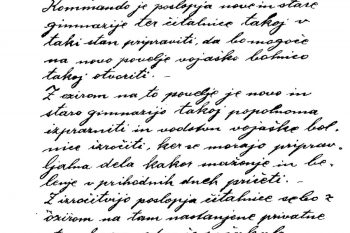 Kommando je poslopja nove in stare
gimnazije ter čitalnice takoj v
taki stan pripraviti, da bo mogoče
na novo povelje vojaško bolnico
takoj otvoriti. —
Z ozirom na to povelje je novo in
staro gimnazijo takoj popolnoma
izprazniti in vodstvu vojaške bol-
nice izročiti, ker se morajo priprav-
ljalna dela kakor mazanje in be-
lenje v prihodnih dneh pričeti. —
Z izročitvijo poslopja čitalnice se bo z
ozirom na tam nastanjene privatne